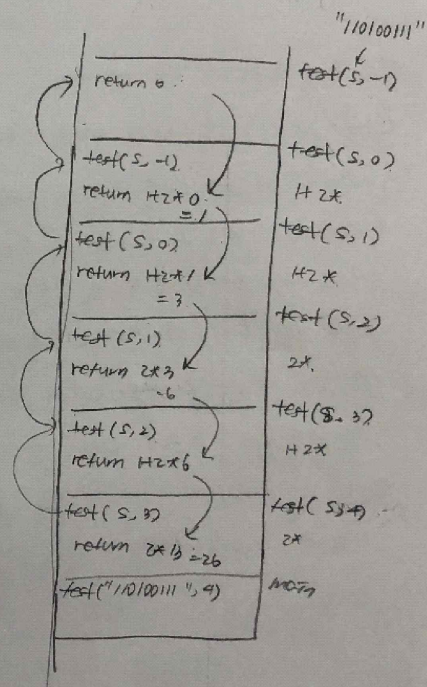 "110100111"
test(S,-1)
return 0
test(S,0)
test(S,-1)
1+2*
return 1+2*0
=1
test(S,1)
test(S,0)
1+2*
return 1+2*1
=3
test(S,2)
test(S,1)
2*
return 2*3
=6
test(S,3)
test(S,2)
1+2*
return 1+2*6
test(S,3)
test(S,4)
2*
return 2*13=26
test("110100111",4)
main